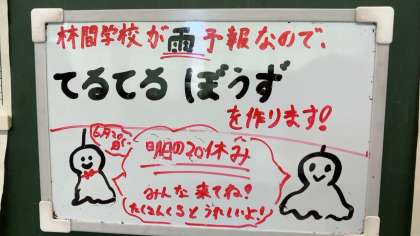 林間学校が雨予報なので、
てるてるぼうず
を作ります!
6月20日
明日の20休み
みんな来てね!
たくさんくるとうれしいよ!